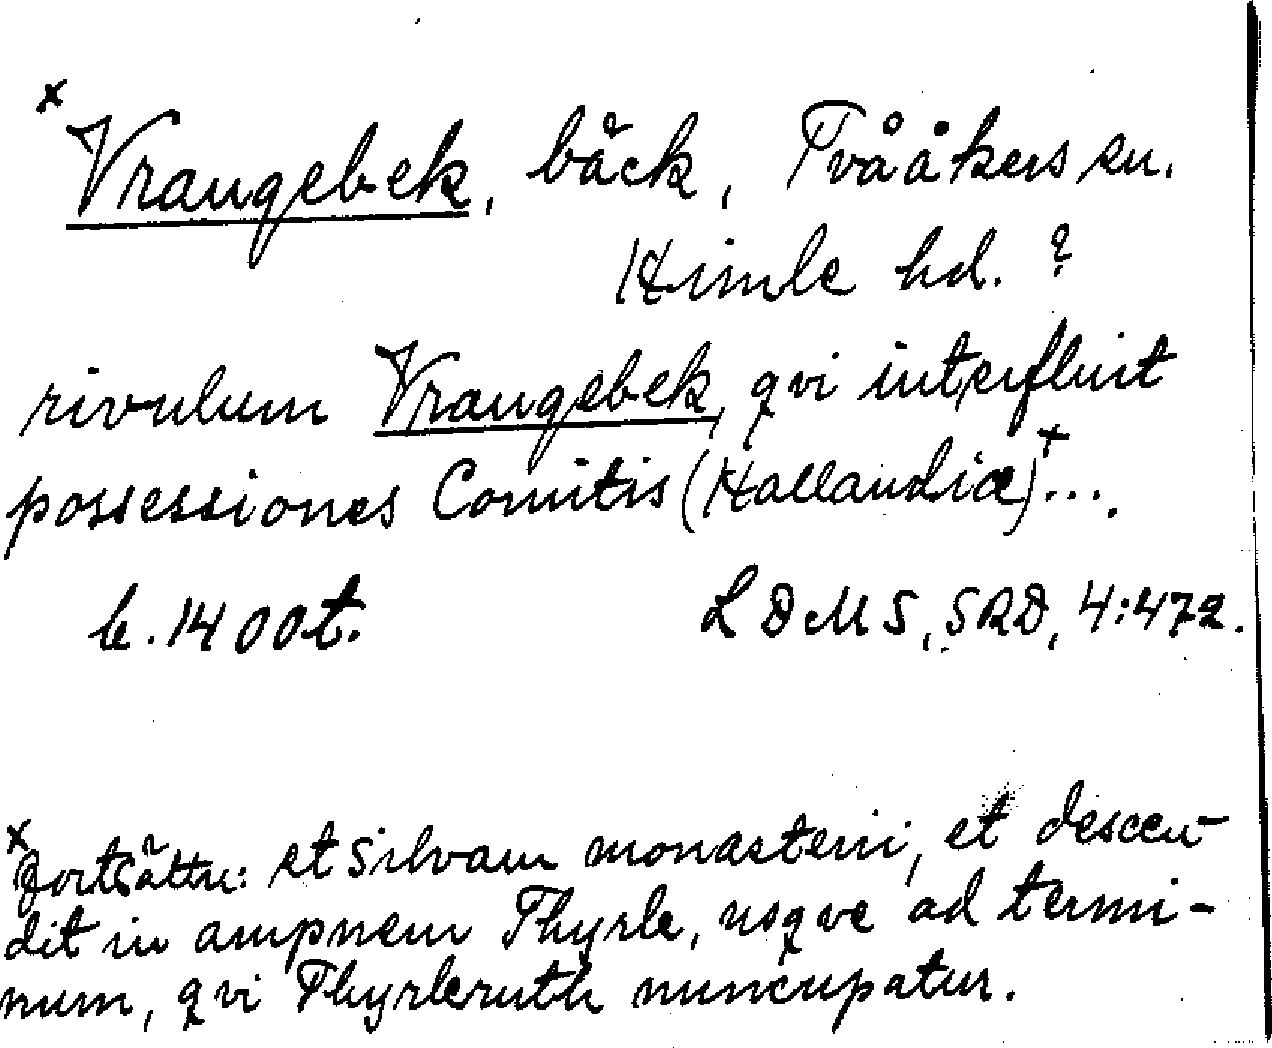 x Vrangebek, bäck, Tvååkers sn.
Himle hd. ?
rivulum Vrangebek, qvi interfluit
possessiones Comitis (Hallandiæ)x ....
b. 1400t. LDMS, SRD, 4:472.
x fortsätter: et silvam monasterii, et descen-
dit in ampnem Thyrle, usqve ad termi-
num, qvi Thyrleruth nuncupatur.